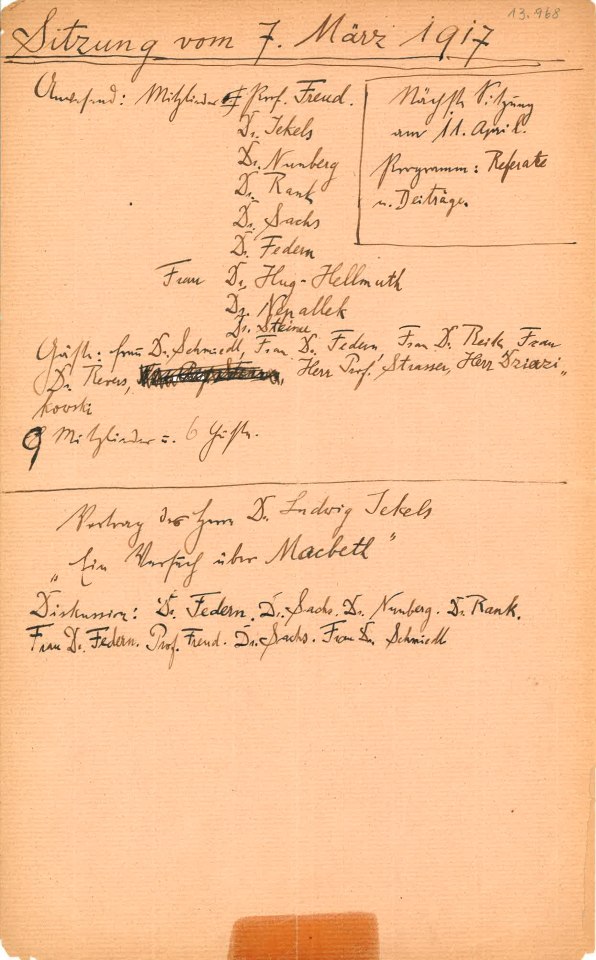 13.968
Sitzung vom 7. März 1917
Anwesend: Mitglieder Prof. Freud.
Dr. Jekels
Dr. Nunberg
Dr. Rank
Dr. Sachs
Dr. Federn
Frau Dr. Hug-Hellmuth
Dr. Nepallek
Dr. Steiner
Nächste Sitzung
am 11. April.
Programm: Referate
u. Beiträge.
Gäste: Frau Dr. Schmiedl, Frau Dr. Federn Frau Dr. Reik, Frau
Dr. Revesz, Herr Prof. Strasser, Herr
kowski
9 Mitglieder u. 6 Gäste.
Vortrag des Herrn Dr. Ludwig Jekels
„Ein Versuch über Macbeth"
Diskussion: Dr. Federn. Dr. Sachs. Dr. Nunberg. Dr. Rank.
Frau Dr. Federn. Prof. Freud. Dr. Sachs. Frau Dr. Schmiedl